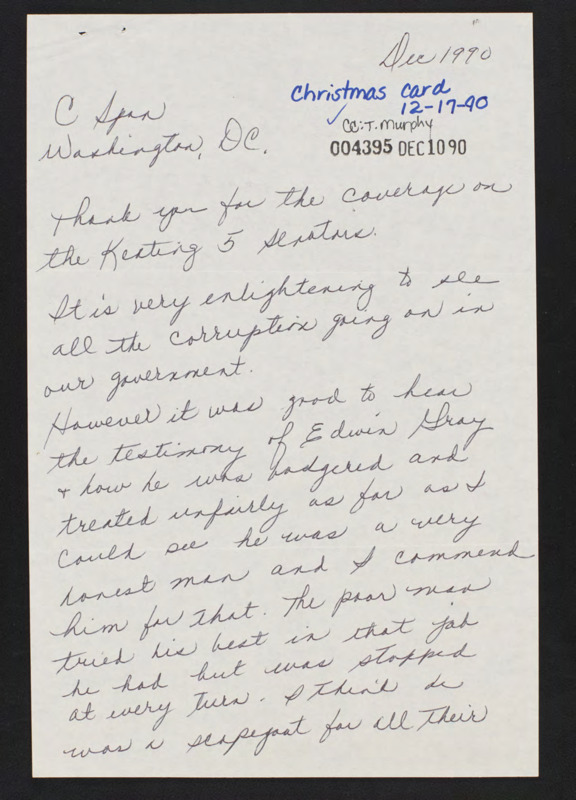 Dec 1990
Christmas card
✓ 12-17-90
CC: T. Murphy
004395 DEC1090
C Span
Washington, DC.
Thank you for the coverage on
the Keating 5 Senators.
It is very enlightening to see
all the corruption going on in
our government.
However it was good to hear
the testimony of Edwin Gray
+ how he was badgered and
treated unfairly as far as I
could see he was a very
honest man and I commend
him for that. The poor man
tried his best in that job
he had but was stopped
at every turn. I think he
was a scapegoat for all their